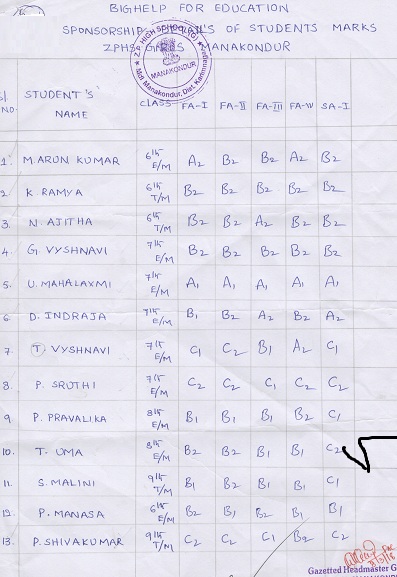 BIGHELP FOR EDUCATION
SPONSORSHIP OF STUDENTS MARKS
ZPHS MANAKONDUR
Z.P. HIGH SCHOOL
MANAKONDUR
Sl. NO. STUDENT'S NAME CLASS FA-I FA-II FA-III FA-IV SA-I
1. M. ARUN KUMAR 6th E/M A2 B2 B2 A2 B2
2 K. RAMYA 6th T/M B2 B2 B2 B2 B2
3. N. AJITHA 6th T/M B2 B2 A2 B2 B2
4. G. VYSHNAVI 7th E/M B2 B2 B2 B2 B2
5. U. MAHALAXMI 7th E/M A1 A1 A1 A1 A1
6. D. INDRAJA 7th E/M B1 B2 A2 B2 A2
7. T. VYSHNAVI 7th E/M C1 C2 B1 A2 C1
8. P. SRUTHI 7th E/M C2 C2 C1 C2 C2
9 P. PRAVALIKA 8th E/M B1 B1 B1 B2 C1
10. T. UMA 8th E/M B2 B2 B1 B1 C2
11. S. MALINI 9th T/M B1 B2 B1 B1 C1
12. P. MANASA 6th E/M B2 B1 B2 B1 B1
13. P. SHIVAKUMAR 9th T/M C2 C2 C1 B2 C2
Gazetted Headmaster G